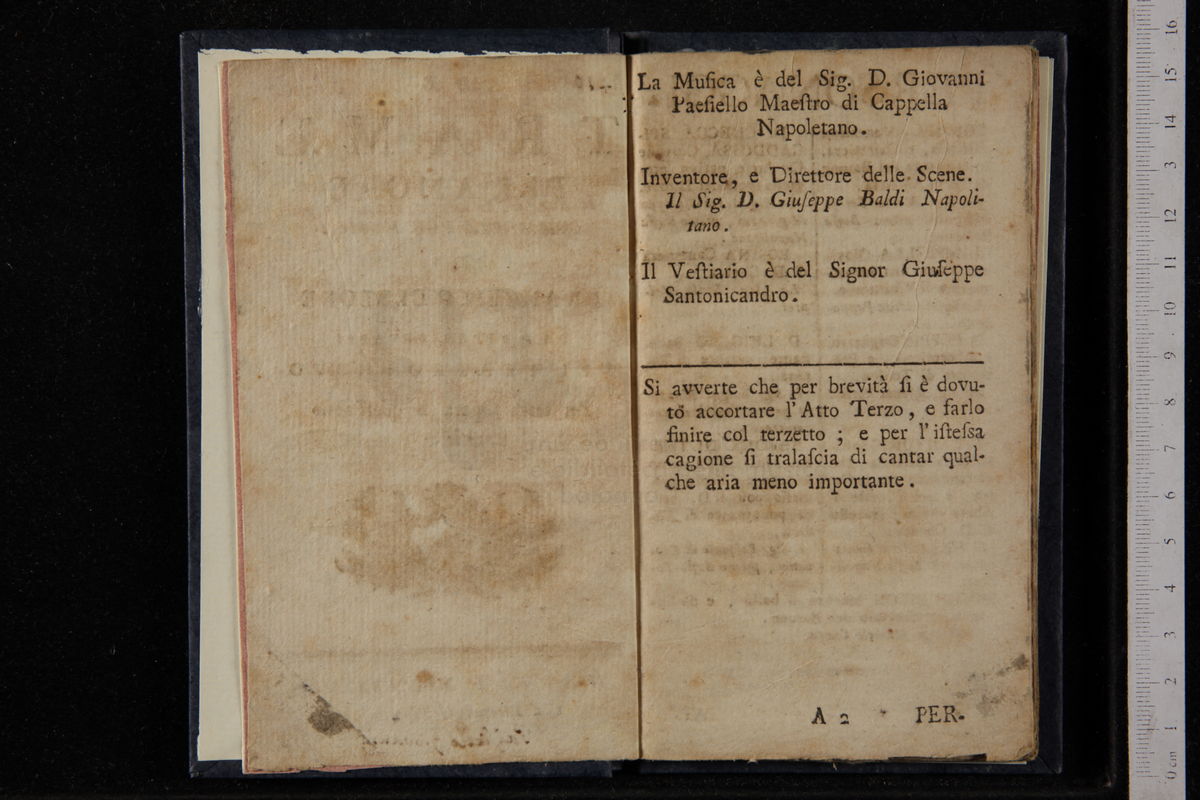 La Muſica è del Sig. D. Giovanni
Paeſiello Maeſtro di Cappella
Napoletano.
Inventore, e Direttore delle Scene.
Il Sig. D. Giuſeppe Baldi Napoli-
tano.
Il Veſtiario è del Signor Giuſeppe
Santonicandro.
Si avverte che per brevità ſi è dovu-
to accortare l' Atto Terzo, e farlo
finire col terzetto ; e per l' iſteſsa
cagione ſi tralaſcia di cantar qual-
che aria meno importante.
A 2 PER-
16
15
14
13
12
11
10
9
8
7
6
5
4
3
2
1
0 cm